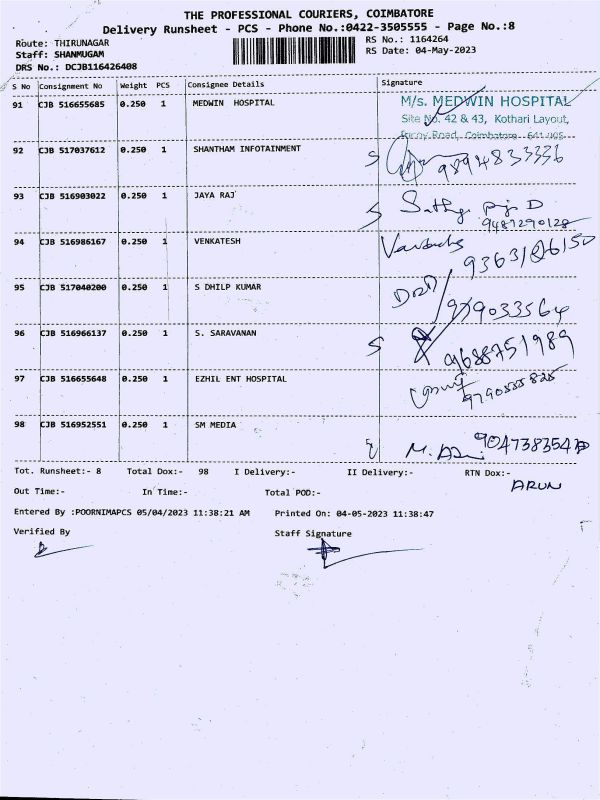 THE PROFESSIONAL COURIERS, COIMBATORE
Delivery Runsheet - PCS - Phone No.:0422-3505555 - Page No.:8
Route: THIRUNAGAR
Staff: SHANMUGAM
DRS No.: DCJB116426408
RS No.: 1164264
RS Date: 04-May-2023
S No Consignment No Weight PCS Consignee Details Signature
91 CJB 516655685 0.250 1 MEDWIN HOSPITAL
M/s. MEDWIN HOSPITAL
Site No. 42 & 43, Kothari Layout,
Road, Coimbatore
92 CJB 517037612 0.250 1 SHANTHAM INFOTAINMENT
9894833336
93 CJB 516903022 0.250 1 JAYA RAJ
9487290128
94 CJB 516986167 0.250 1 VENKATESH
95 CJB 517040200 0.250 1 S DHILP KUMAR
96 CJB 516966137 0.250 1 S. SARAVANAN
9688751989
97 CJB 516655648 0.250 1 EZHIL ENT HOSPITAL
98 CJB 516952551 0.250 1 SM MEDIA
Tot. Runsheet:- 8 Total Dox:- 98 I Delivery:- II Delivery:- RTN Dox:-
ARUN
Out Time:- In Time:- Total POD:-
Entered By :POORNIMAPCS 05/04/2023 11:38:21 AM Printed On: 04-05-2023 11:38:47
Verified By Staff Signature